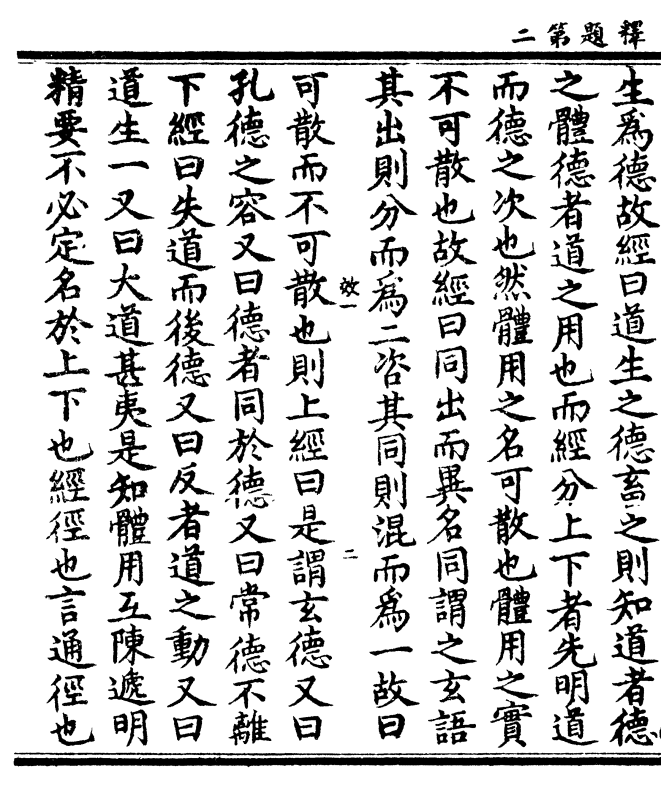 釋題第二
生爲德故經曰道生之德畜之則知道者德
之體德者道之用也而經分上下者先明道
而德之次也然體用之名可散也體用之實
不可散也故經曰同出而異名同謂之玄語
其出則分而爲二咨其同則混而爲一故曰
效一
二
可散而不可散也則上經曰是謂玄德又曰
孔德之容又曰德者同於德又曰常德不離
下經曰失道而後德又曰反者道之動又曰
道生一又曰大道甚夷是知體用互陳遞明
精要不必定名於上下也經徑也言通徑也